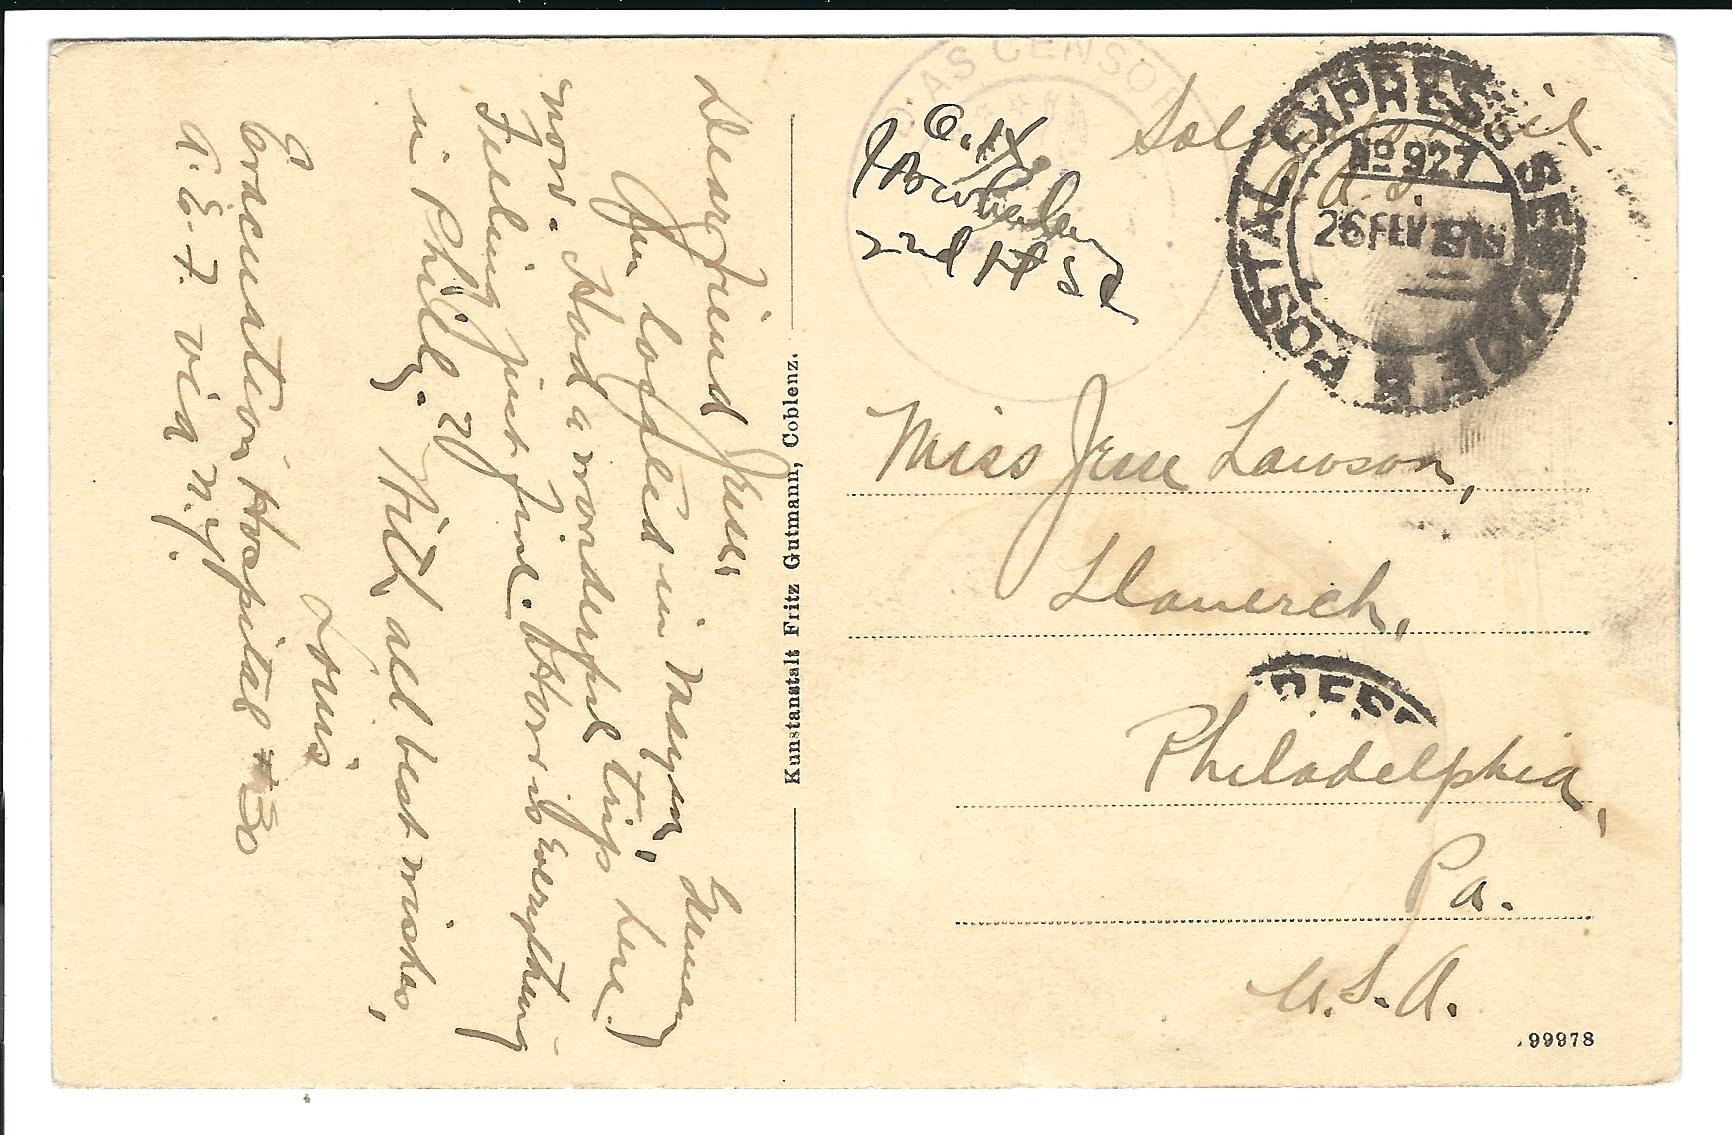 Dear Friend Jesse:
Am located in Mayen, Germany
now. Had a wonderful trip here.
Feeling just fine. How is Everything
in Phila.? With all best wishes,
Louis.
Evacuation Hospital #30
A.E.F. via N.Y.
Kunstanstalt Fritz Gutmann, Coblenz.
A.S. CENSOR
O.K.
2nd Lt
Soldiers Mail
POSTAL EXPRESS SERVICE
No 927
26 FEV 1919
Miss Jesse Lawson,
Llanerch,
RESS
Philadelphia,
Pa.
U.S.A.
99978